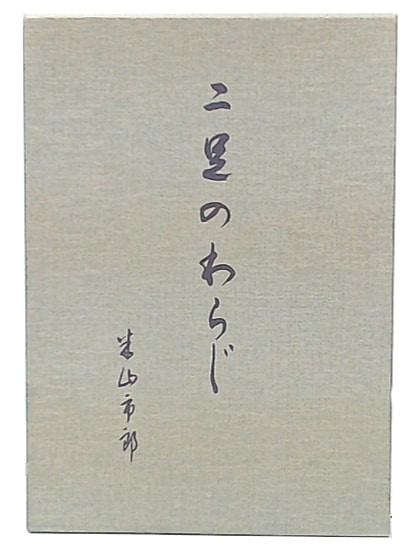 二足のわらじ
米山市郎